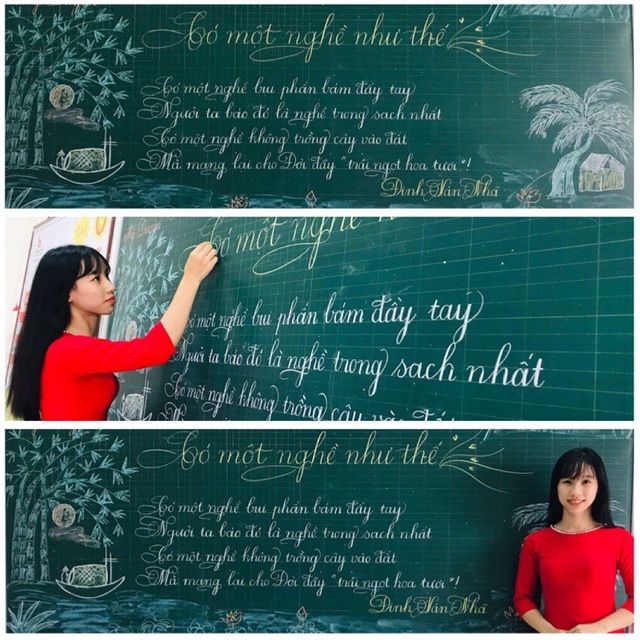 Có một nghề như thế
Có một nghề bụi phấn bám đầy tay
Người ta bảo đó là nghề trong sạch nhất
Có một nghề không trồng cây vào đất
Mà mang lại cho Đời đầy "trái ngọt hoa tươi"!
Đinh Văn Nhã
Có một nghề
Có một nghề bụi phấn bám đầy tay
Người ta bảo đó là nghề trong sạch nhất
Có một nghề không trồng cây vào đất
Có một nghề như thế
Có một nghề bụi phấn bám đầy tay
Người ta bảo đó là nghề trong sạch nhất
Có một nghề không trồng cây vào đất
Mà mang lại cho Đời đầy "trái ngọt hoa tươi"!
Đinh Văn Nhã